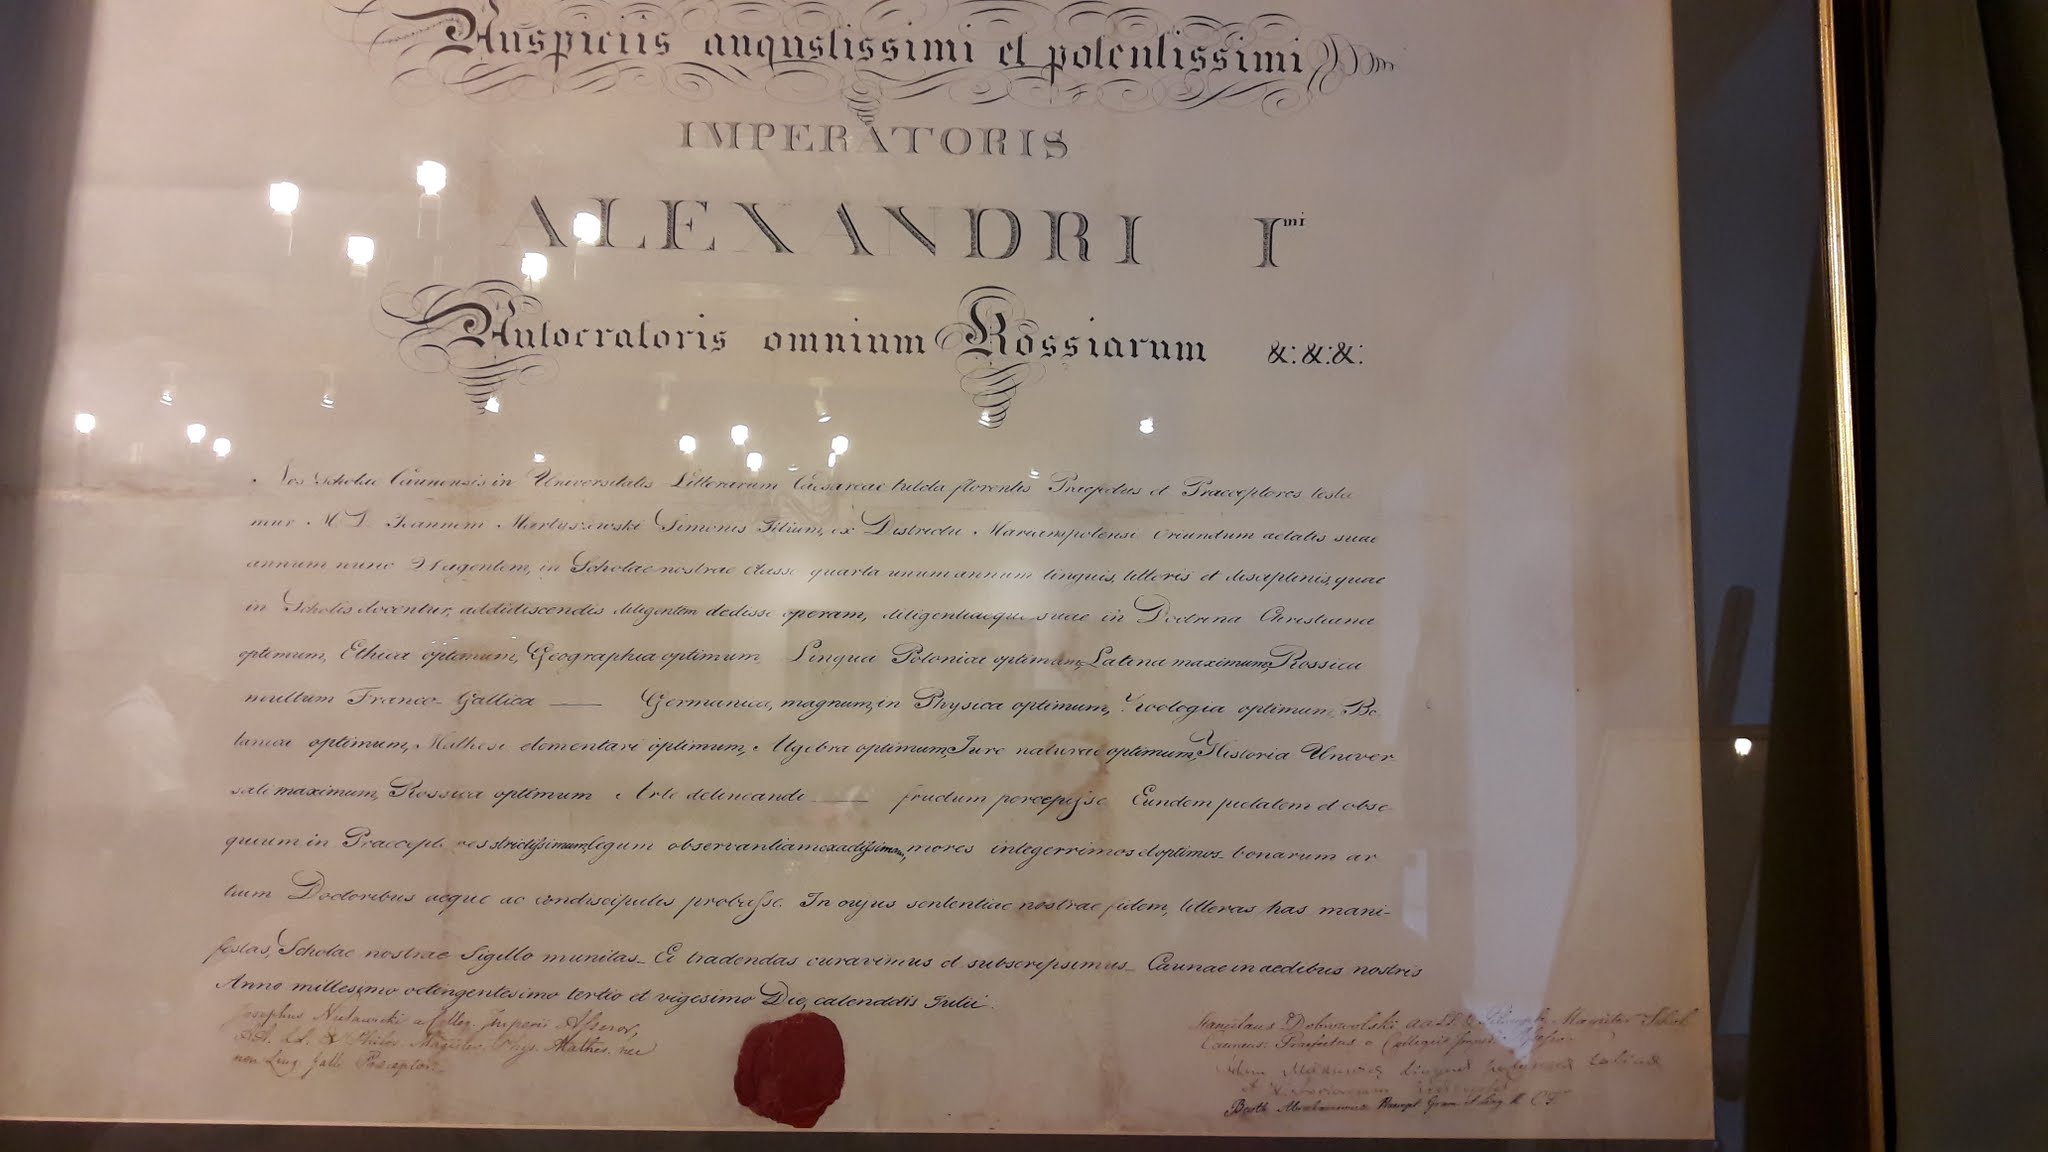 Auspiciis augustissimi et potentissimi
IMPERATORIS
ALEXANDRI I mi
Autocratoris omnium Rossiarum &:&:&:
Nos Scholae Caunensis in Universitatis Litterarum Caesareae tutela florentis Praefectus et Praeceptores testa
mur Joannem Martyszewski Simonis Filium, ex Districtu Mariampolensi oriundum aetatis suae
annum nunc agentem, in Scholae nostrae classe quarta unum annum linguis, litteris et disciplinis, quae
in Scholis docentur, addidiscendis diligentem dedisse operam, diligentiaeque suae in Doctrina Christiana
optimum, Ethica optimum, Geographia optimum, Lingua Polonica optimum, Latina maximum, Rossica
multum Franco-Gallica — Germanica, magnum, in Physica optimum, Zoologia optimum Bo
tanica optimum, Mathesi elementari optimum, Algebra optimum, Jure naturae optimum, Historia Univer
sali maximum, Rossica optimum Arte delineandi — fructum percepisse Eundem pietatem et obse
quium in Praecept ores strictissimum, legum observantiam exactissimam, mores integerrimos et optimos bonarum ar
tium Doctoribus aeque ac condiscipulis probasse. In cujus sententiae nostrae fidem, litteras has mani-
festas, Scholae nostrae Sigillo munitas Ei tradendas curavimus et subscripsimus Caunae in aedibus nostris
Anno millesimo octingentesimo tertio et vigesimo Die, calenddis Julii.
Josephus a Colleg. Imperii Assesor,
& Philos. Magister, Phys. Mathes.
Ling. Gall. Praeceptor.
Stanislaus Dobrowolski Magister Schol
Caunens: Praefectus a
linguae
Praecept Gram et Ling